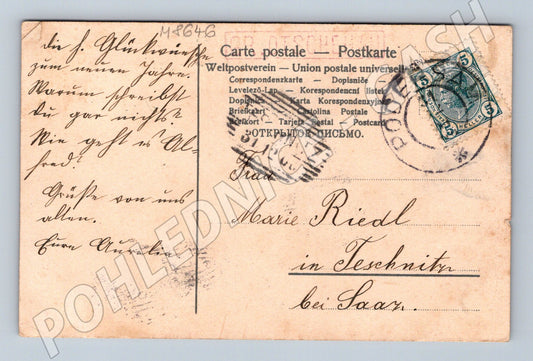 M8646
Carte postale — Postkarte
Weltpostverein — Union postale universelle
Correspondenzkarte — Dopisnice
Levelező-Lap — Korespondencni listek
Dopisnica — Karta Korespondencyjna
Briefkaart — Cartolina Postale
Brefkort — Tarjeta Postal — Postcard
ОТКРЫТОЕ ПИСЬМО.
die h. Glückwünsche
zum neuen Jahre.
Warum schreibst
du gar nichts?
Wie geht es Al-
fred?
Grüße von uns
allen.
Eure Aurelie
Frau
Marie Riedl
in Teschnitz
bei Saaz.
5 5
5 5
POHLEDNICASH